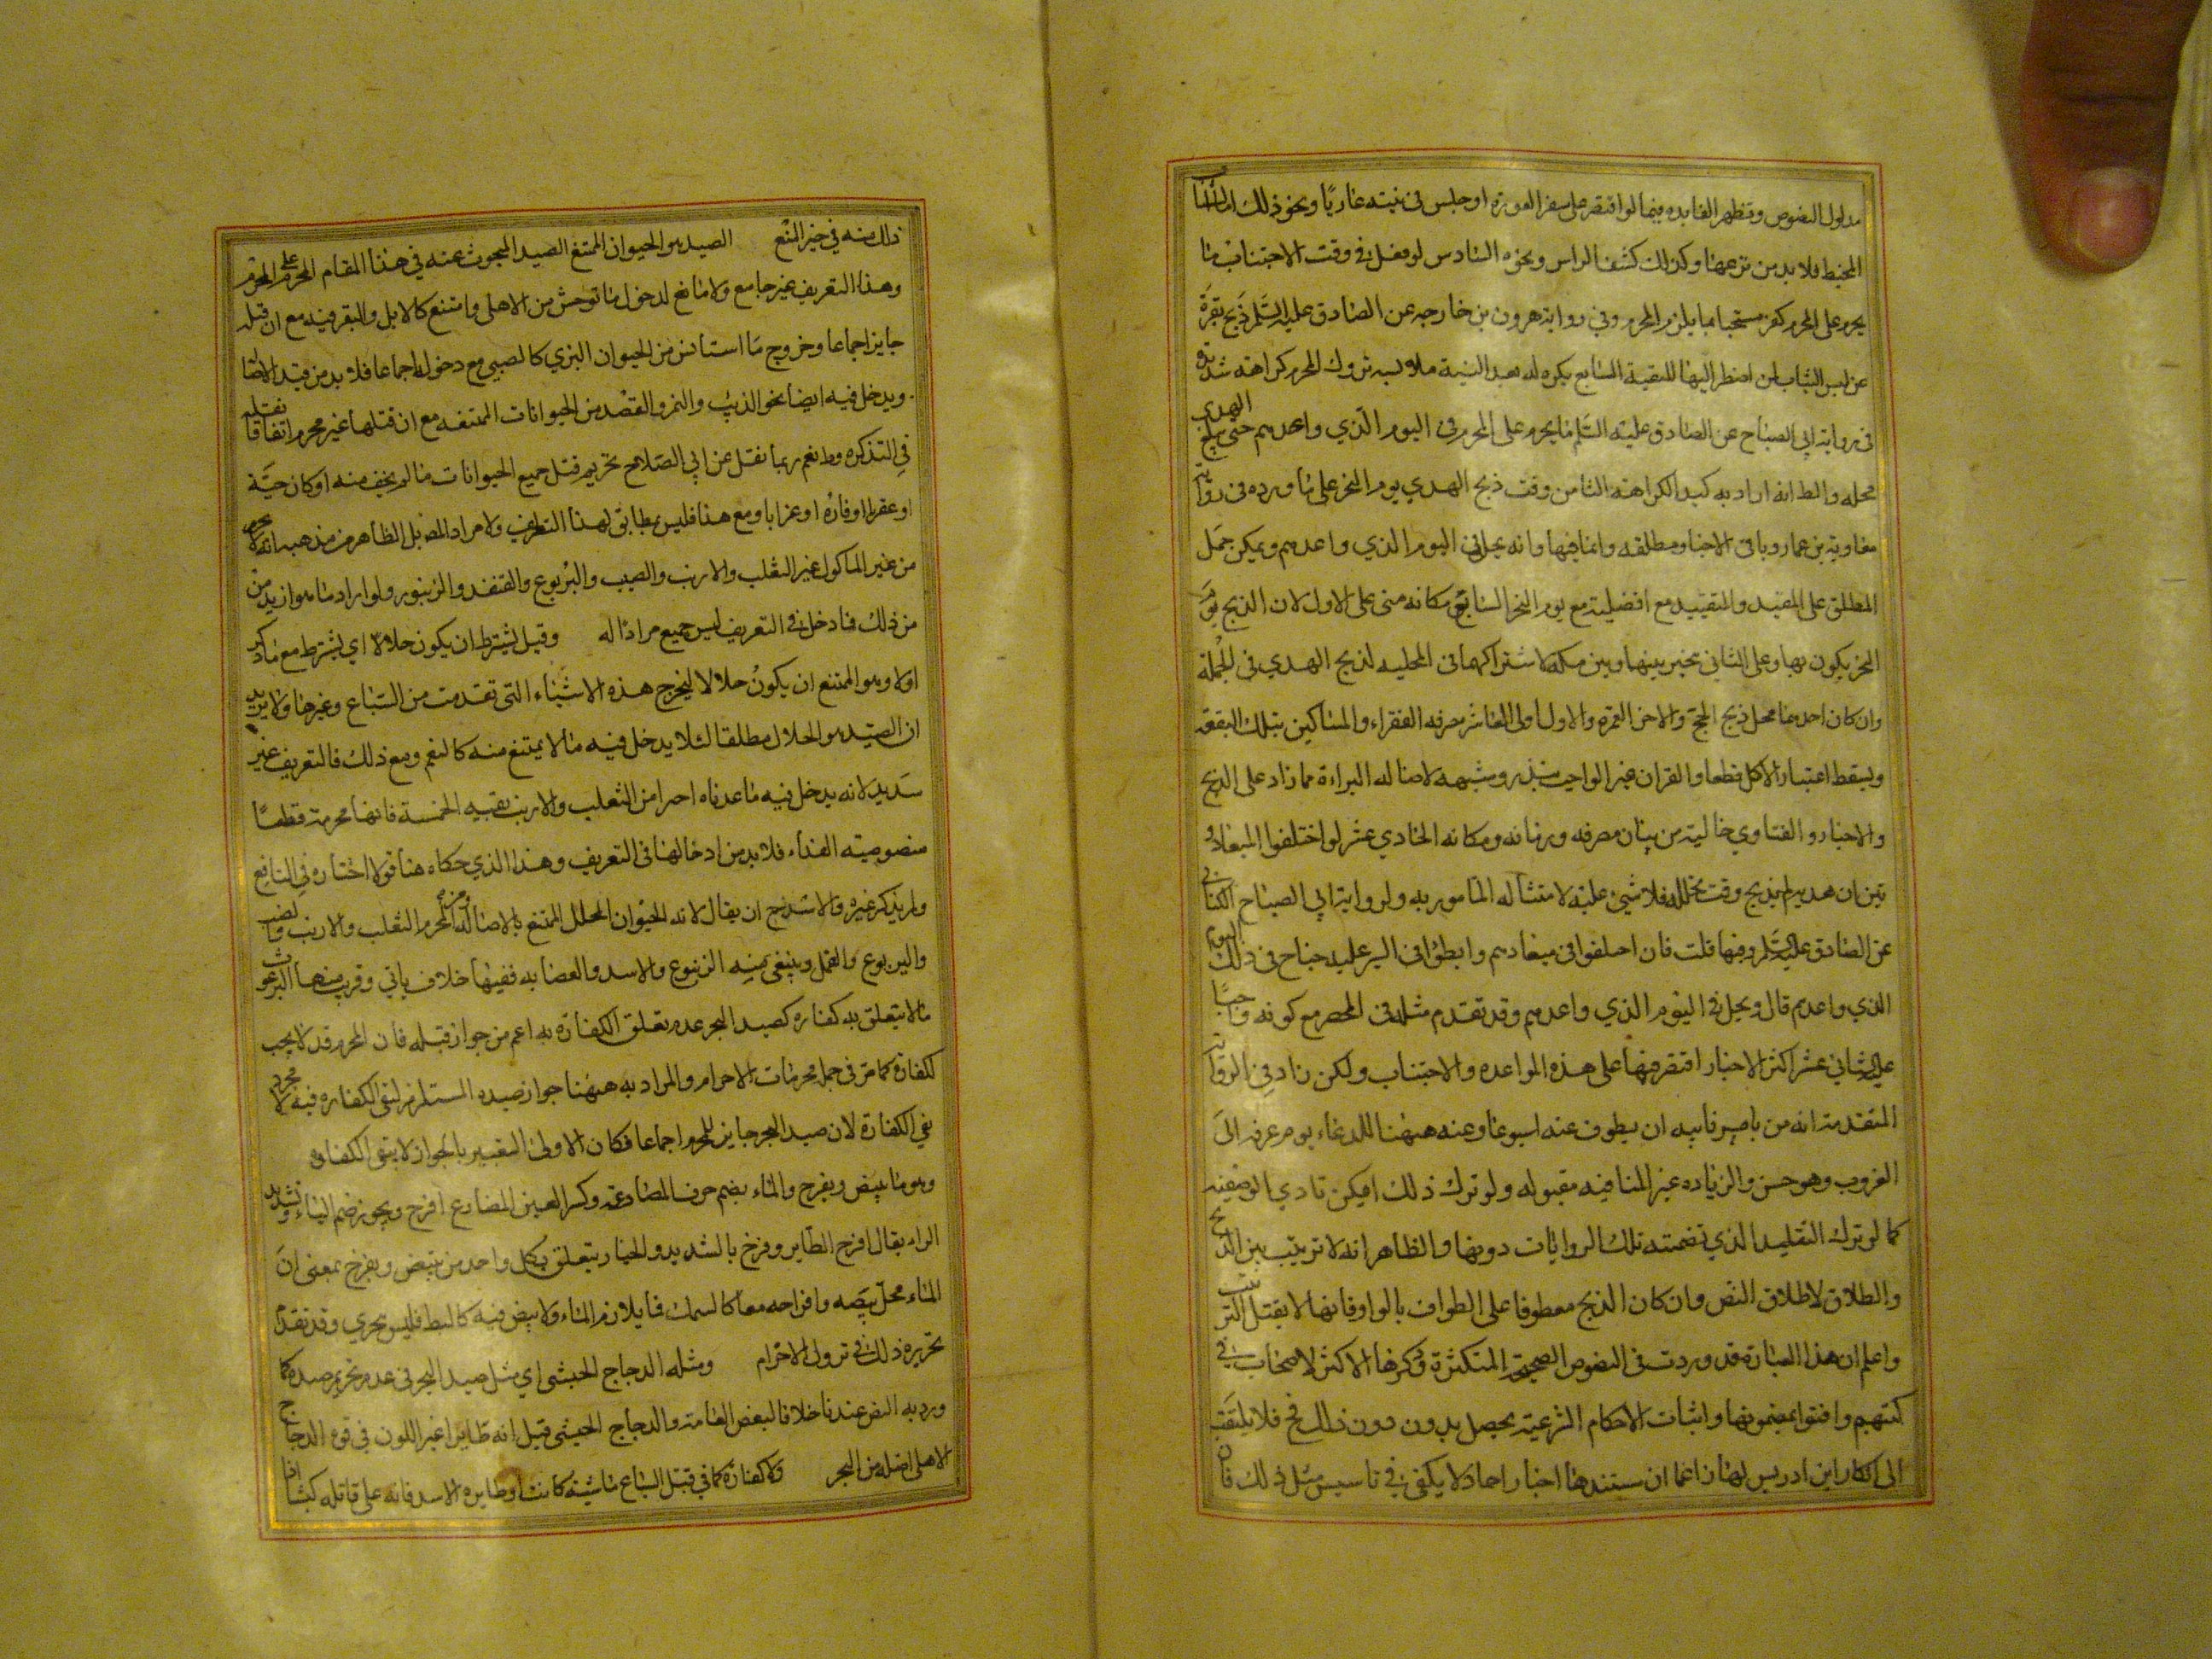 مدلول النصوص وتظهر الفايده فيما لو اقتصر على ستر العورة او جلس في بيته عاريا ونحو ذلك اما
المخيط فلا بد من نزعهنا وكذلك كشف الراس ونحوه السادس لو فعل في وقت الاجتناب ما
يحرم على المحرم كفر مستحبا بما يلزم المحرم وفي رواية هرون بن خارجه عن الصادق عليه السلم ذبح بقرة
عن لبس الثياب لمن اضطر اليها للتقية السابع يكره له بعد النية ملابسه تروك المحرم كراهته شديدة
في رواية ابي الصباح عن الصادق عليه السلم ما يحرم على المحرم في اليوم الذي واعدهم حتى يبلغ الهدي
محله والظ انه اراد به كيد الكراهة الثامن وقت ذبح الهدي يوم النحر على ما ورد في رواية
معاوية بن عمار وباقي الاخبار مطلقه وانما فيها وانه يحل في اليوم الذي واعدهم ويمكن حمل
المطلق على المقيد والتقييد مع افضليته مع يوم النحر التاسع مكانه منى على الاول لان الذبح يوم
النحر يكون بها وعلى الثاني يخير بينها وبين مكة لاشتراكهما في المحليه لذبح الهدي في الجملة
وان كان احدهما محل ذبح الحج والاخر العمرة والاول اولى العاشر مصرفه الفقراء والمساكين بتلك البقعة
ويسقط اعتبار الاكل قطعا والقران غير الواجب بنذر وشبهه لاصالة البراءة مما زاد على الذبح
والاخبار والفتاوي خالية من بيان مصرفه وزمانه ومكانه الحادي عشر لو اختلفوا الميعاد و
تبين ان هديهم لم يذبح وقت تحلله فلا شيء عليه لامتثاله المأمور به ولرواية ابي الصباح الكناني
عن الصادق عليه السلم وفيها قلت فان اختلفوا في ميعادهم وابطؤا في السير عليه جناح في ذلك اليوم
الذي واعدهم قال ويحل في اليوم الذي واعدهم وقد تقدم مثله في المحصر مع كونه واجبا
عليه الثاني عشر اكثر الاخبار اقتصر فيها على هذه المواعده والاجتناب ولكن زاد في الرواية
المتقدمة انه من يامره فانيه ان يطوف عنه اسبوعا وعنه ههنا للدعاء يوم عرفه الى
الغروب وهو حسن والزياده غير المنافيه مقبوله ولو ترك ذلك امكن تادي الوظيفه
كما لو ترك التقليد الذي تضمنته تلك الروايات دونها والظاهر انه لا ترتيب بين الذبح
والطلاق لاطلاق النص وان كان الذبح معطوفا على الطواف بالواو فانها لا يقتل الترتيب
واعلم ان هذا العبارة قد وردت في النصوص الصحيحة المتكثرة وذكرها الاكثر الاصحاب في
كتبهم وافتوا بمضمونها واثبات الاحكام الشرعية يحصل بدون دون ذلك فح فلا يلتفت
الى انكار ابن ادريس لها زاعما ان مستندها اخبار احاد لا يكفى في تاسيس مثل ذلك فان
ذلك منه في خبر المنع الصيد هو الحيوان الممتنع الصيد المبحوث عنه في هذا المقام المحرم على المحرم
وهذا التعريف غير جامع ولا مانع لدخول ما توحش من الاهلى وامتنع كالابل والبقر فيه مع ان قتله
جايز اجماعا وخروج ما استانس من الحيوان البري كالصبي مع دخوله اجماعا فلا بد من قيد الاصالة
ويدخل فيه ايضا نحو الذيب والنمر والفهد من الحيوانات الممتنعه مع ان قتلها غير محرم اتفاقا نقله
في التذكره وط نعم ربما نقل عن ابي الصلاح تحريم قتل جميع الحيوانات ما لم يخف منه او كان حية
او عقربا او فارة او غرابا ومع هذا فليس بمطابق لهذا التعريف ولا مراد المص بل الظاهر من مذهبه انه لا يحرم
من غير الماكول غير الثعلب والارنب والضب واليربوع والقنفذ والزنبور ولو اراد ما هو ازيد من
من ذلك فما دخل في التعريف ليس جميع مرادا له وقيل يشترط ان يكون حلالا اي يشترط مع ما ذكر
اولا وهو الممتنع ان يكون حلالا ليخرج هذه الاشياء التي تقدمت من السباع وغيرها ولا يريد
ان الصيد هو الحلال مطلقا لئلا يدخل فيه ما لا يمتنع منه كالنعم ومع ذلك فالتعريف غير
سديد لانه يدخل فيه ما عدناه اخرا من الثعلب والارنب بقيه الخمسة فانها محرمة قطعا
منصوصيته الفداء فلا بد من ادخالها في التعريف وهذا الذي حكاه هنا قولا اختاره في النافع
ولم يذكر غيره والاسد ح ان يقال لانه الحيوان المحلل الممتنع بالاصاله ومن المحرم الثعلب والارنب والضب
واليربوع والقمل وينبغي منه الزنبوع والاسد والعضابه ففيها خلاف ياتي وقرب منها البرغوث
ما لا يتعلق به كفاره كصيد البحر عدم تعلق الكفارة به اعم من جواز قتله فان المحرم قد لا يجب
كلفارة كما مر في جمل محرمات الاحرام والمراد به ههنا جواز صيده المستلزم لنفى الكفاره فيه لا مجرد
نفي الكفارة لان صيد البحر جايز للمحرم اجماعا فكان الاولى التعبير بالجواز لا بنفى الكفاره
وهو ما يبيض ويفرخ والماء بضم حرف المضارعة وكسر العين المضارع افرخ ويجوز ضم الياء وتشديد
الراء يقال افرخ الطاير وفرخ بالتشديد والجار يتعلق بكل واحد من يبيض ويفرخ بمعنى ان
الماء محل بيضه وافراخه معا كالسمك فما يلازم الماء ولا يبيض فيه كالبط فليس بحري وقد تقدم
تحريره ذلك في تروك الاحرام ومثله الدجاج الحبشى اي مثل صيد البحر في عدم تحريم صيده كما
ورد به النص عندنا خلافا لبعض العامة والدجاج الحبشى قيل انه طاير اغبر اللون في قوع الدجاج
الاهلى اصله من البحر ولا كفارة كما في قتل السباع ماشية كانت او طايره الاسد فانه على قاتله كبشا اذا